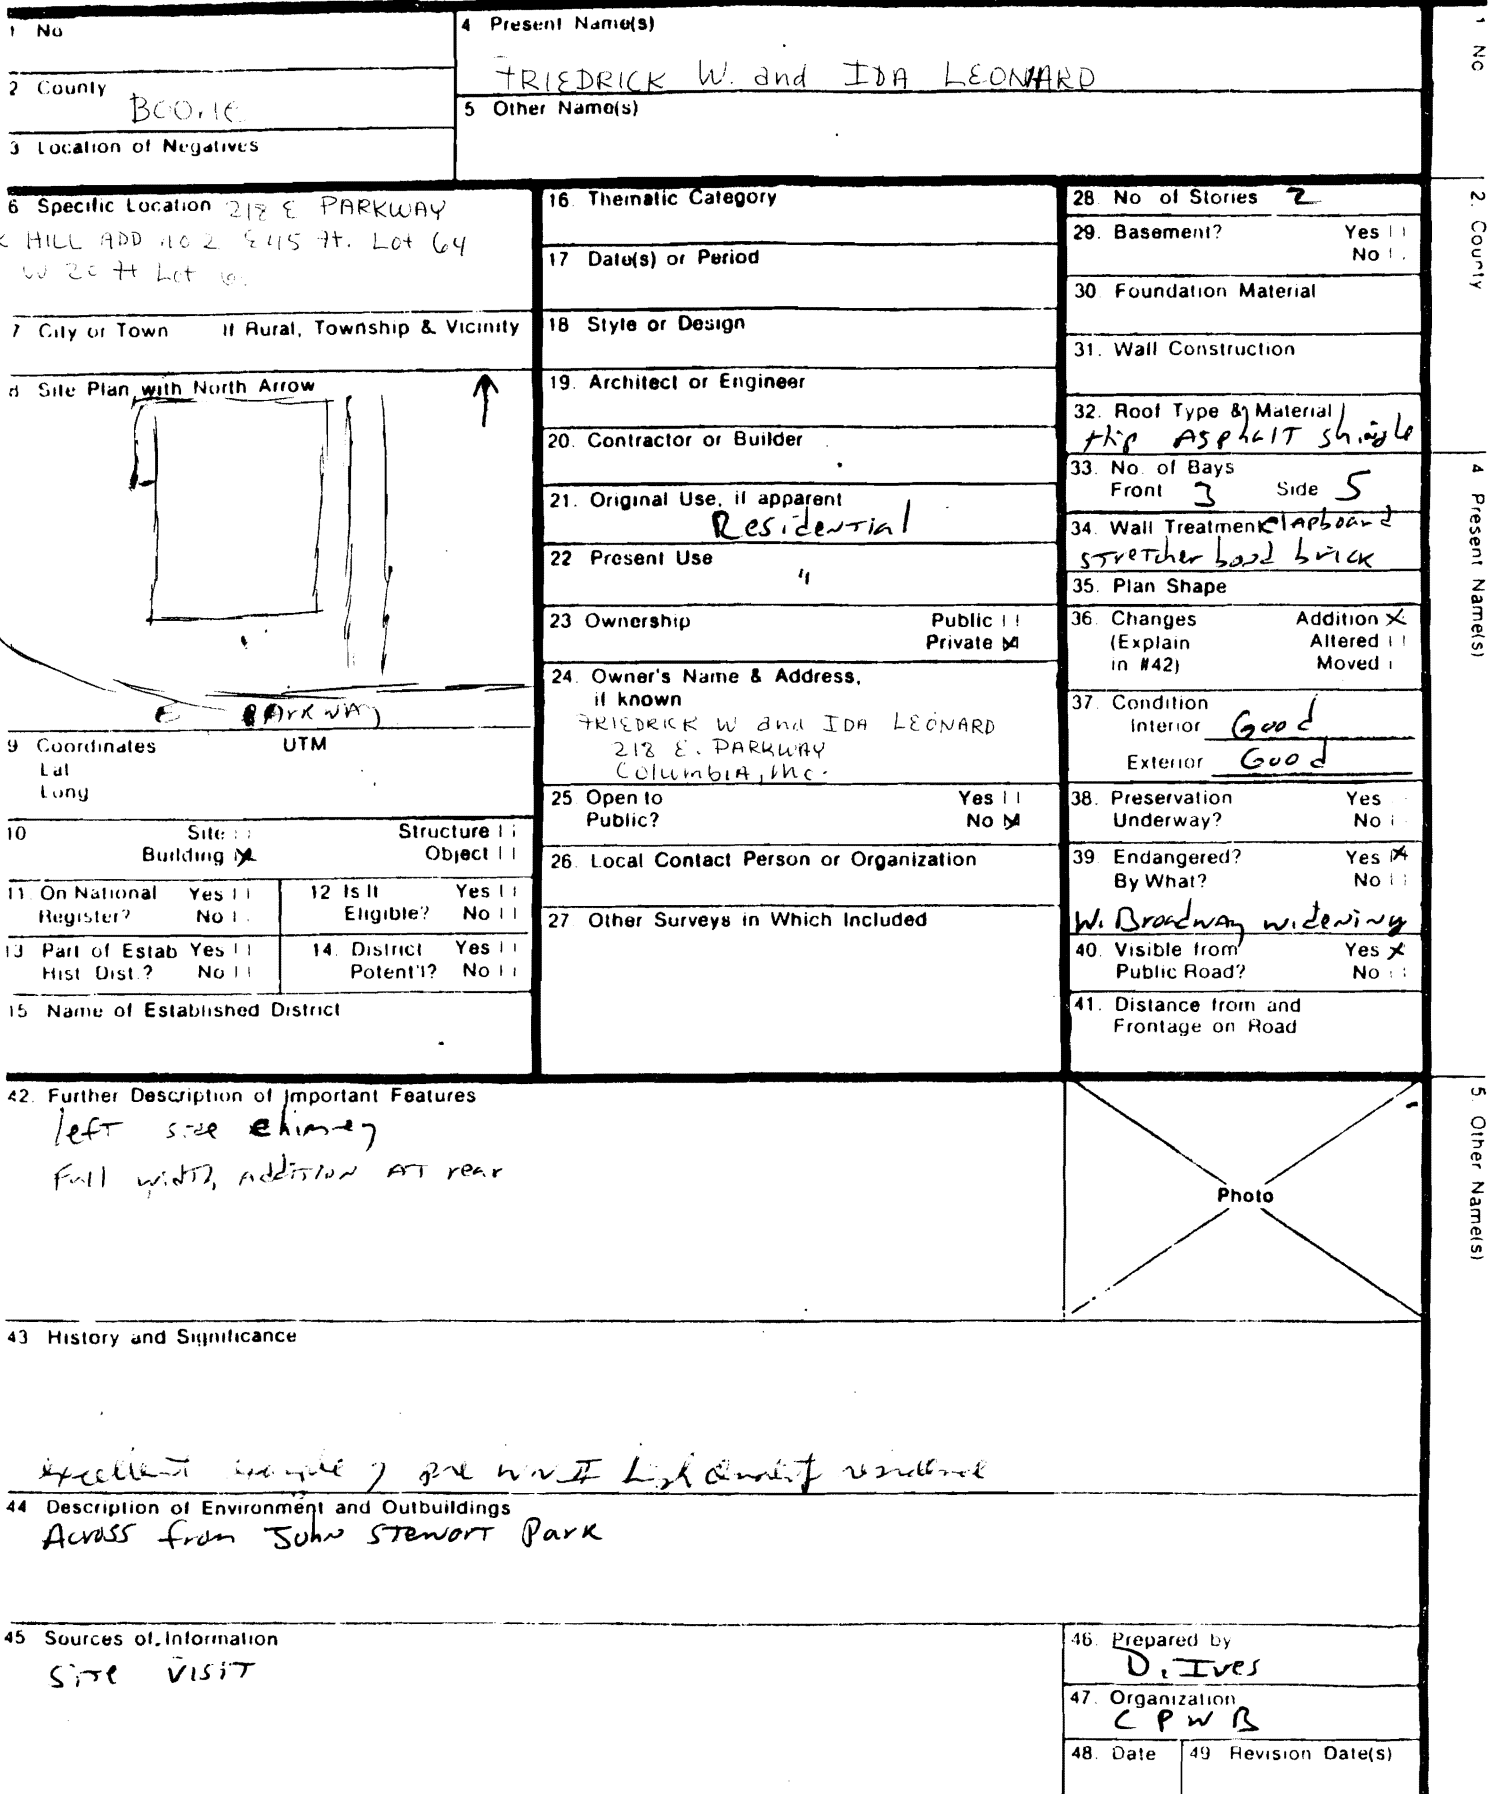 1 No
4 Present Name(s)
FRIEDRICK W. and IDA LEONARD
2 County
Boone
5 Other Name(s)
3 Location of Negatives
6 Specific Location 218 E PARKWAY
HILL ADD NO 2 E 45 ft. Lot 64
W 20 ft Lot
7 City or Town If Rural, Township & Vicinity
8 Site Plan with North Arrow
E PARKWAY
9 Coordinates UTM
Lat
Long
10 Site
Structure
Building
Object
11. On National Register? Yes No
12 Is It Eligible? Yes No
13 Part of Estab Hist Dist.? Yes No
14. District Potent'l? Yes No
15 Name of Established District
16. Thematic Category
17 Date(s) or Period
18 Style or Design
19. Architect or Engineer
20. Contractor or Builder
21. Original Use, if apparent
Residential
22 Present Use
"
23 Ownership Public
Private
24. Owner's Name & Address,
if known
FRIEDRICK W and IDA LEONARD
218 E. PARKWAY
Columbia, Mo.
25 Open to Yes
Public? No
26. Local Contact Person or Organization
27 Other Surveys in Which Included
28. No of Stories 2
29. Basement? Yes
No
30. Foundation Material
31. Wall Construction
32. Roof Type & Material
Hip Asphalt shingle
33. No. of Bays
Front 3 Side 5
34. Wall Treatment clapboard
stretcher bond brick
35. Plan Shape
36. Changes Addition X
(Explain Altered
in #42) Moved
37. Condition
Interior Good
Exterior Good
38. Preservation Yes
Underway? No
39. Endangered? Yes X
By What? No
W. Broadway widening
40. Visible from Yes X
Public Road? No
41. Distance from and
Frontage on Road
42. Further Description of Important Features
left side chimney
Full width addition AT rear
Photo
43 History and Significance
excellent example of pre WW II high quality residence
44 Description of Environment and Outbuildings
Across from John Stewart Park
45 Sources of Information
Site visit
46. Prepared by
D. Ives
47. Organization
CPWB
48. Date
49 Revision Date(s)
1 No
2. County
4 Present Name(s)
5. Other Name(s)